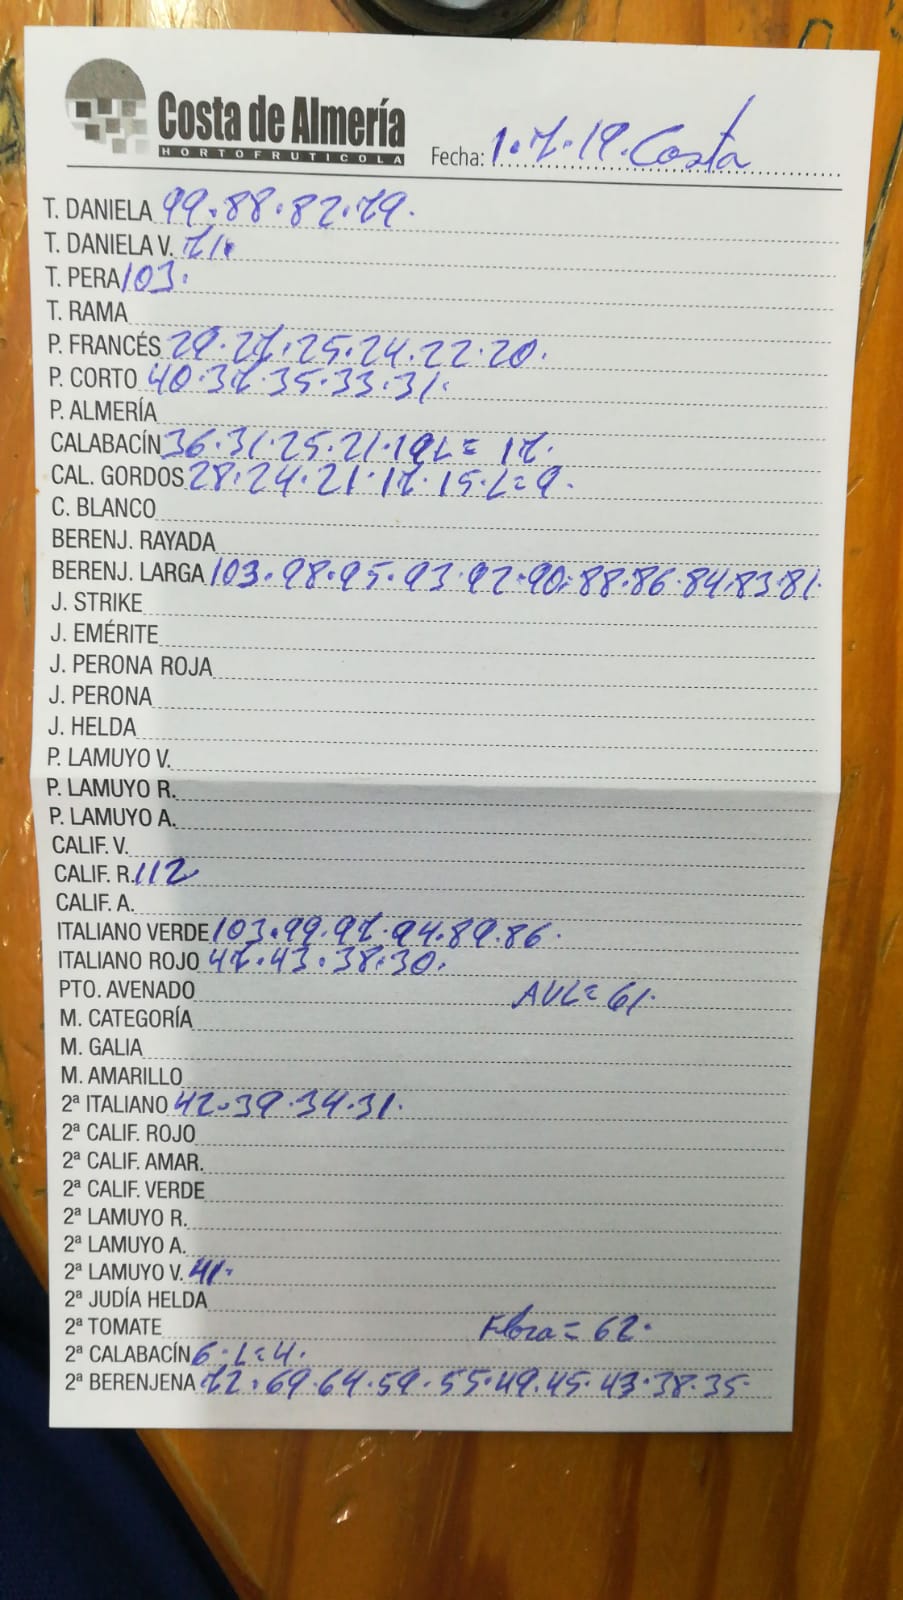 Costa de Almería
HORTOFRUTICOLA
Fecha: 1.7.19. Costa
T. DANIELA 99.88.82.79.
T. DANIELA V. 71.
T. PERA 103.
T. RAMA
P. FRANCÉS 29.27.25.24.22.20.
P. CORTO 40.37.35.33.31.
P. ALMERÍA
CALABACÍN 36.31.25.21.19 L= 17.
CAL. GORDOS 28.24.21.17.15.L=9.
C. BLANCO
BERENJ. RAYADA
BERENJ. LARGA 103.98.95.93.92.90.88.86.84.83.81.
J. STRIKE
J. EMÉRITE
J. PERONA ROJA
J. PERONA
J. HELDA
P. LAMUYO V.
P. LAMUYO R.
P. LAMUYO A.
CALIF. V.
CALIF. R. 112
CALIF. A.
ITALIANO VERDE 103.99.97.94.89.86.
ITALIANO ROJO 47.43.38.30.
PTO. AVENADO AVL= 61.
M. CATEGORÍA
M. GALIA
M. AMARILLO
2ª ITALIANO 42.39.34.31.
2ª CALIF. ROJO
2ª CALIF. AMAR.
2ª CALIF. VERDE
2ª LAMUYO R.
2ª LAMUYO A.
2ª LAMUYO V. 41.
2ª JUDÍA HELDA
2ª TOMATE Flora = 62.
2ª CALABACÍN 6.L=4.
2ª BERENJENA 72.69.64.59.55.49.45.43.38.35.